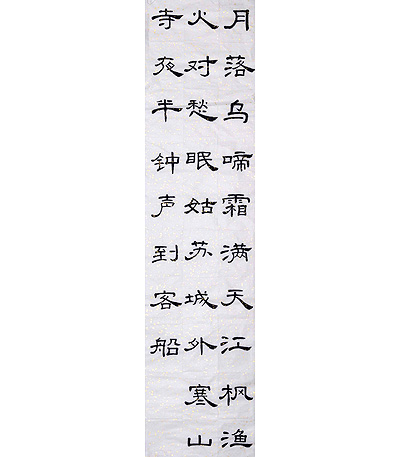 月落乌啼霜满天江枫渔
火对愁眠姑苏城外寒山
寺夜半钟声到客船